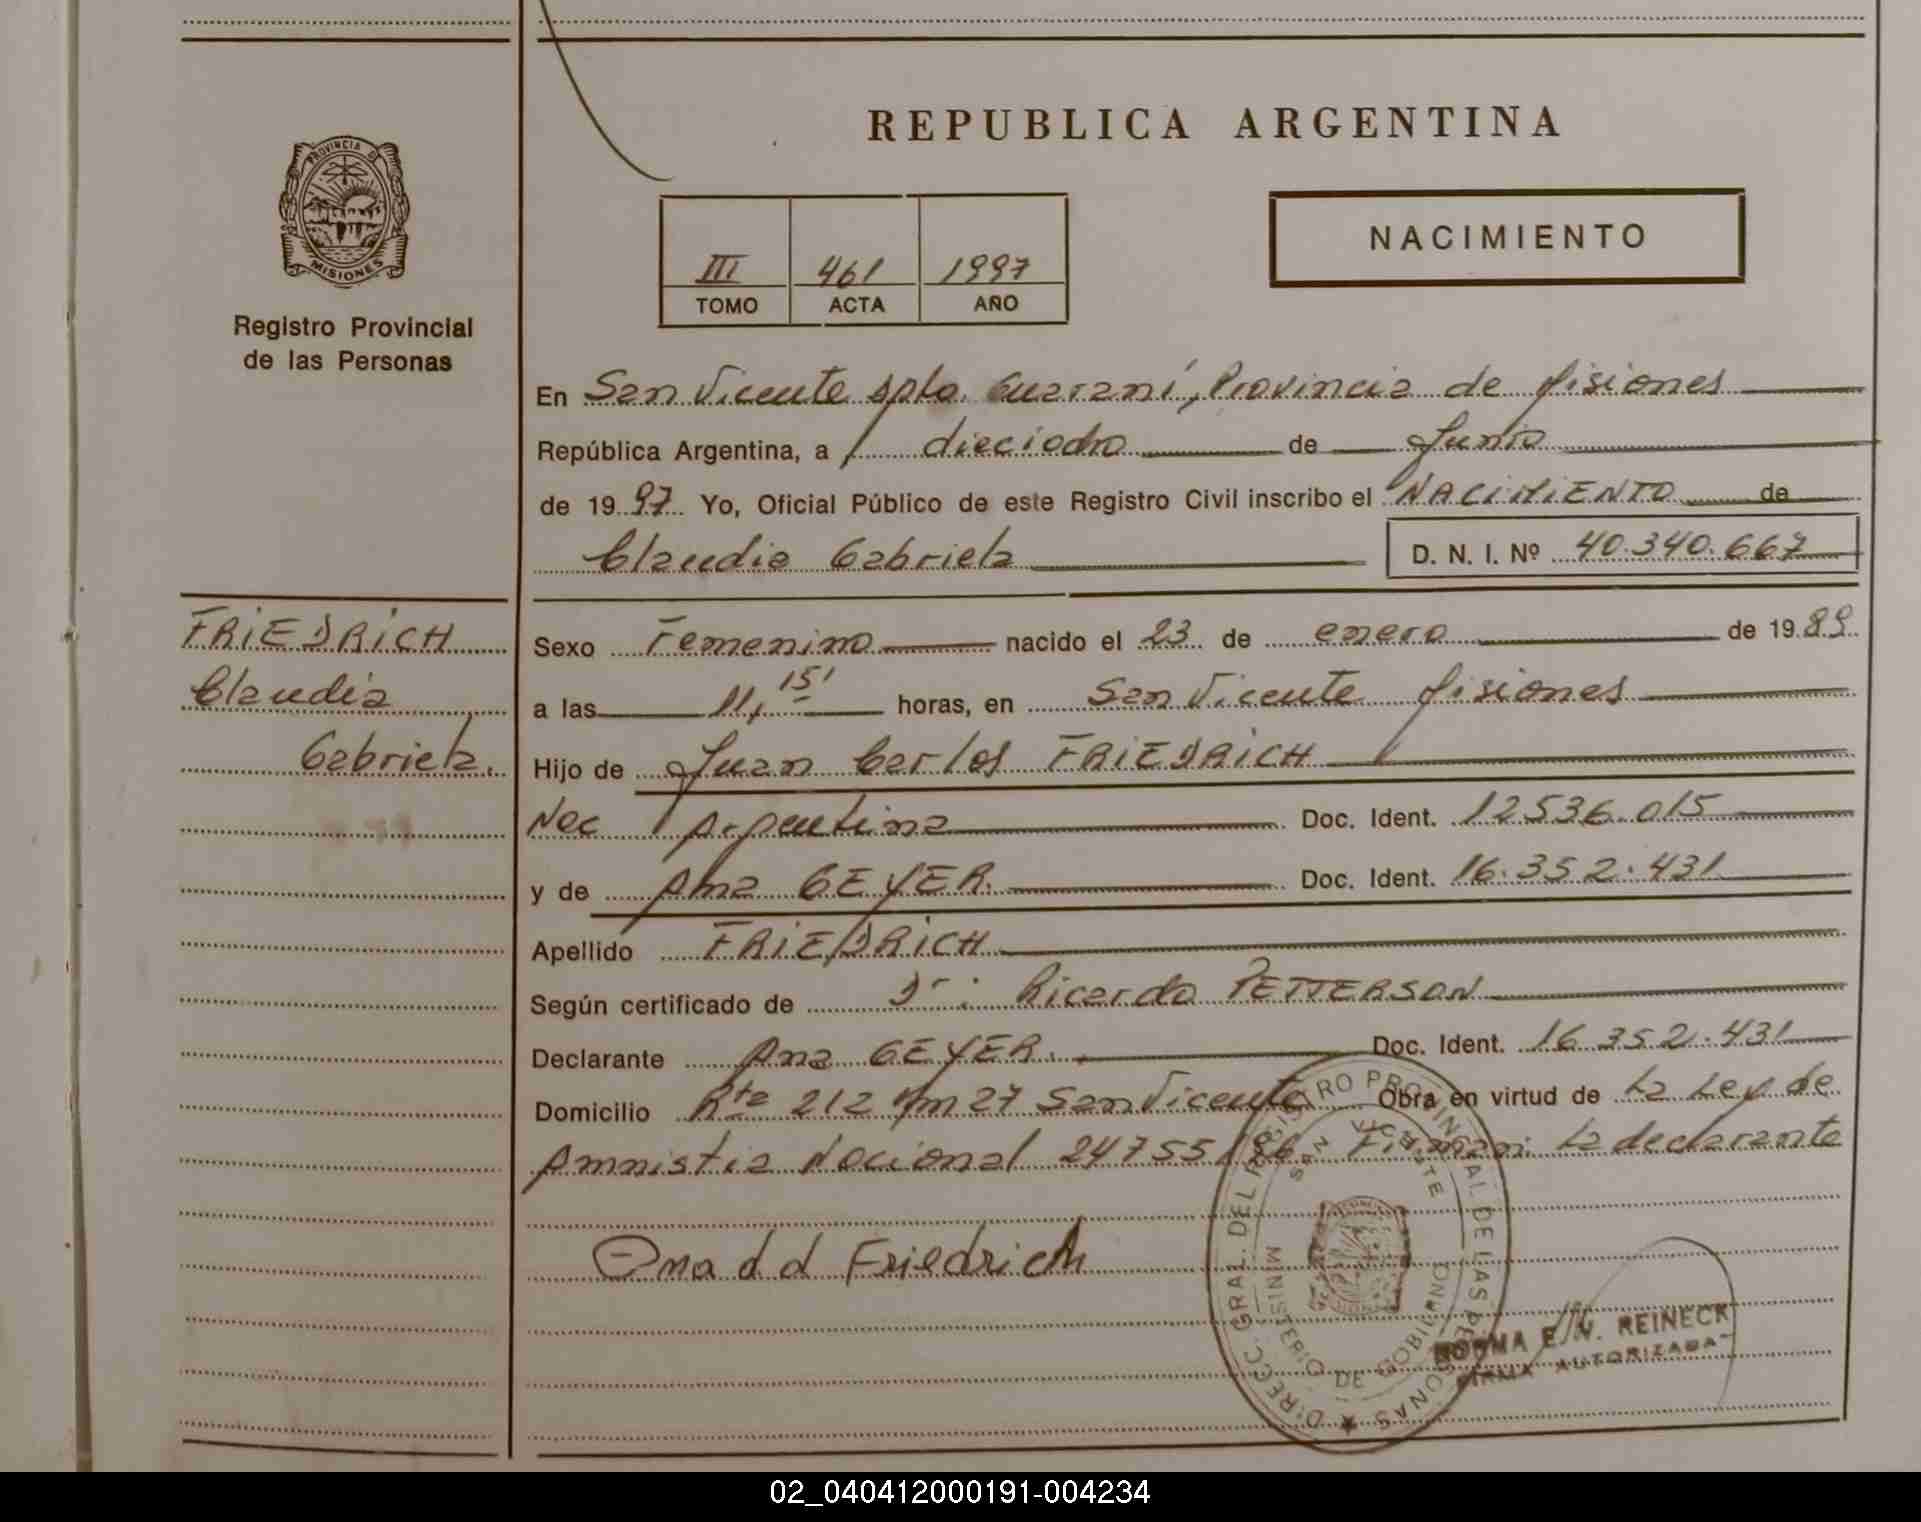 REPUBLICA ARGENTINA
PROVINCIA DE
MISIONES
Registro Provincial
de las Personas
III 461 1997
TOMO ACTA AÑO
NACIMIENTO
En San Vicente Dpto. Guaraní, Provincia de Misiones
República Argentina, a dieciocho de Junio
de 1997 Yo, Oficial Público de este Registro Civil inscribo el NACIMIENTO de
Claudia Gabriela D. N. I. Nº 40.340.667
FRIEDRICH
Claudia
Gabriela.
Sexo Femenino nacido el 23 de enero de 1989
a las 11,15' horas, en San Vicente Misiones
Hijo de Juan Carlos FRIEDRICH
Nac Argentina Doc. Ident. 12536.015
y de Ana GEYER. Doc. Ident. 16.352.431
Apellido FRIEDRICH
Según certificado de Dr: Ricardo PETTERSON
Declarante Ana GEYER. Doc. Ident. 16 352.431
Domicilio Rta 212 Km 27 San Vicente Obra en virtud de La Ley de
Amnistia Nacional 24755/96 Firman: La declarante
Ana d d Friedrich
DIRECC. GRAL. DEL REGISTRO PROVINCIAL DE LAS PERSONAS
SAN VICENTE
MINISTERIO DE GOBIERNO
NORMA E. N. REINECK
FIRMA AUTORIZADA
02_040412000191-004234